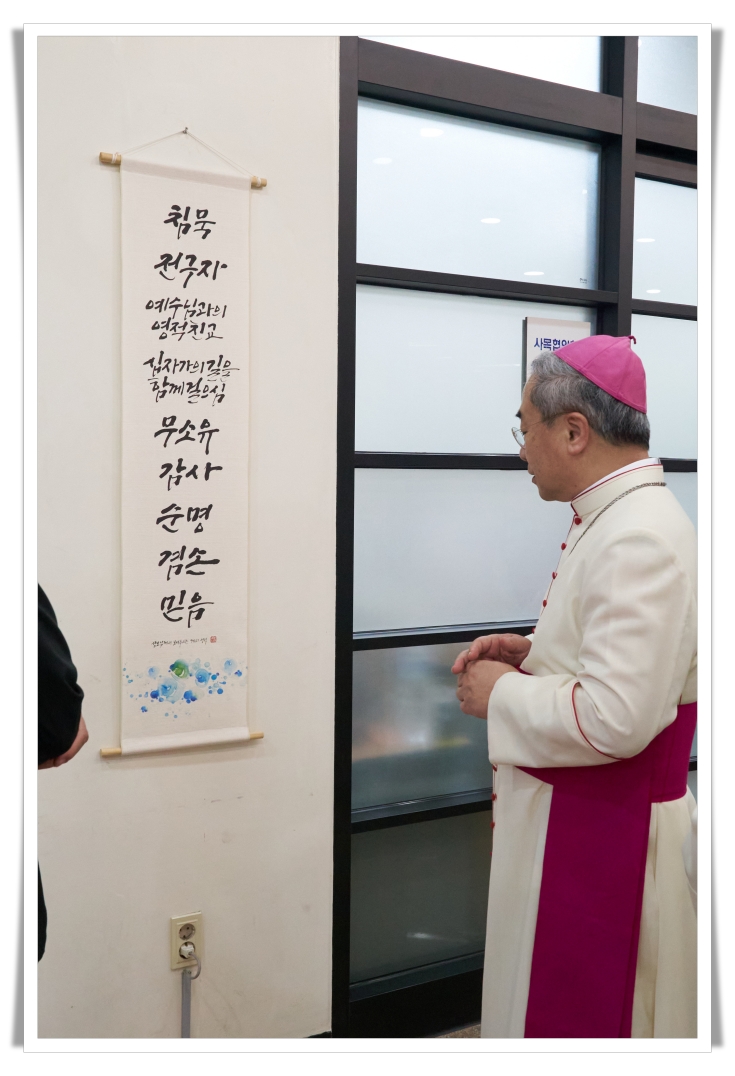 침묵
전구자
예수님과의
영적친교
십자가의 길을
함께 걸으심
무소유
감사
순명
겸손
믿음
사목협의